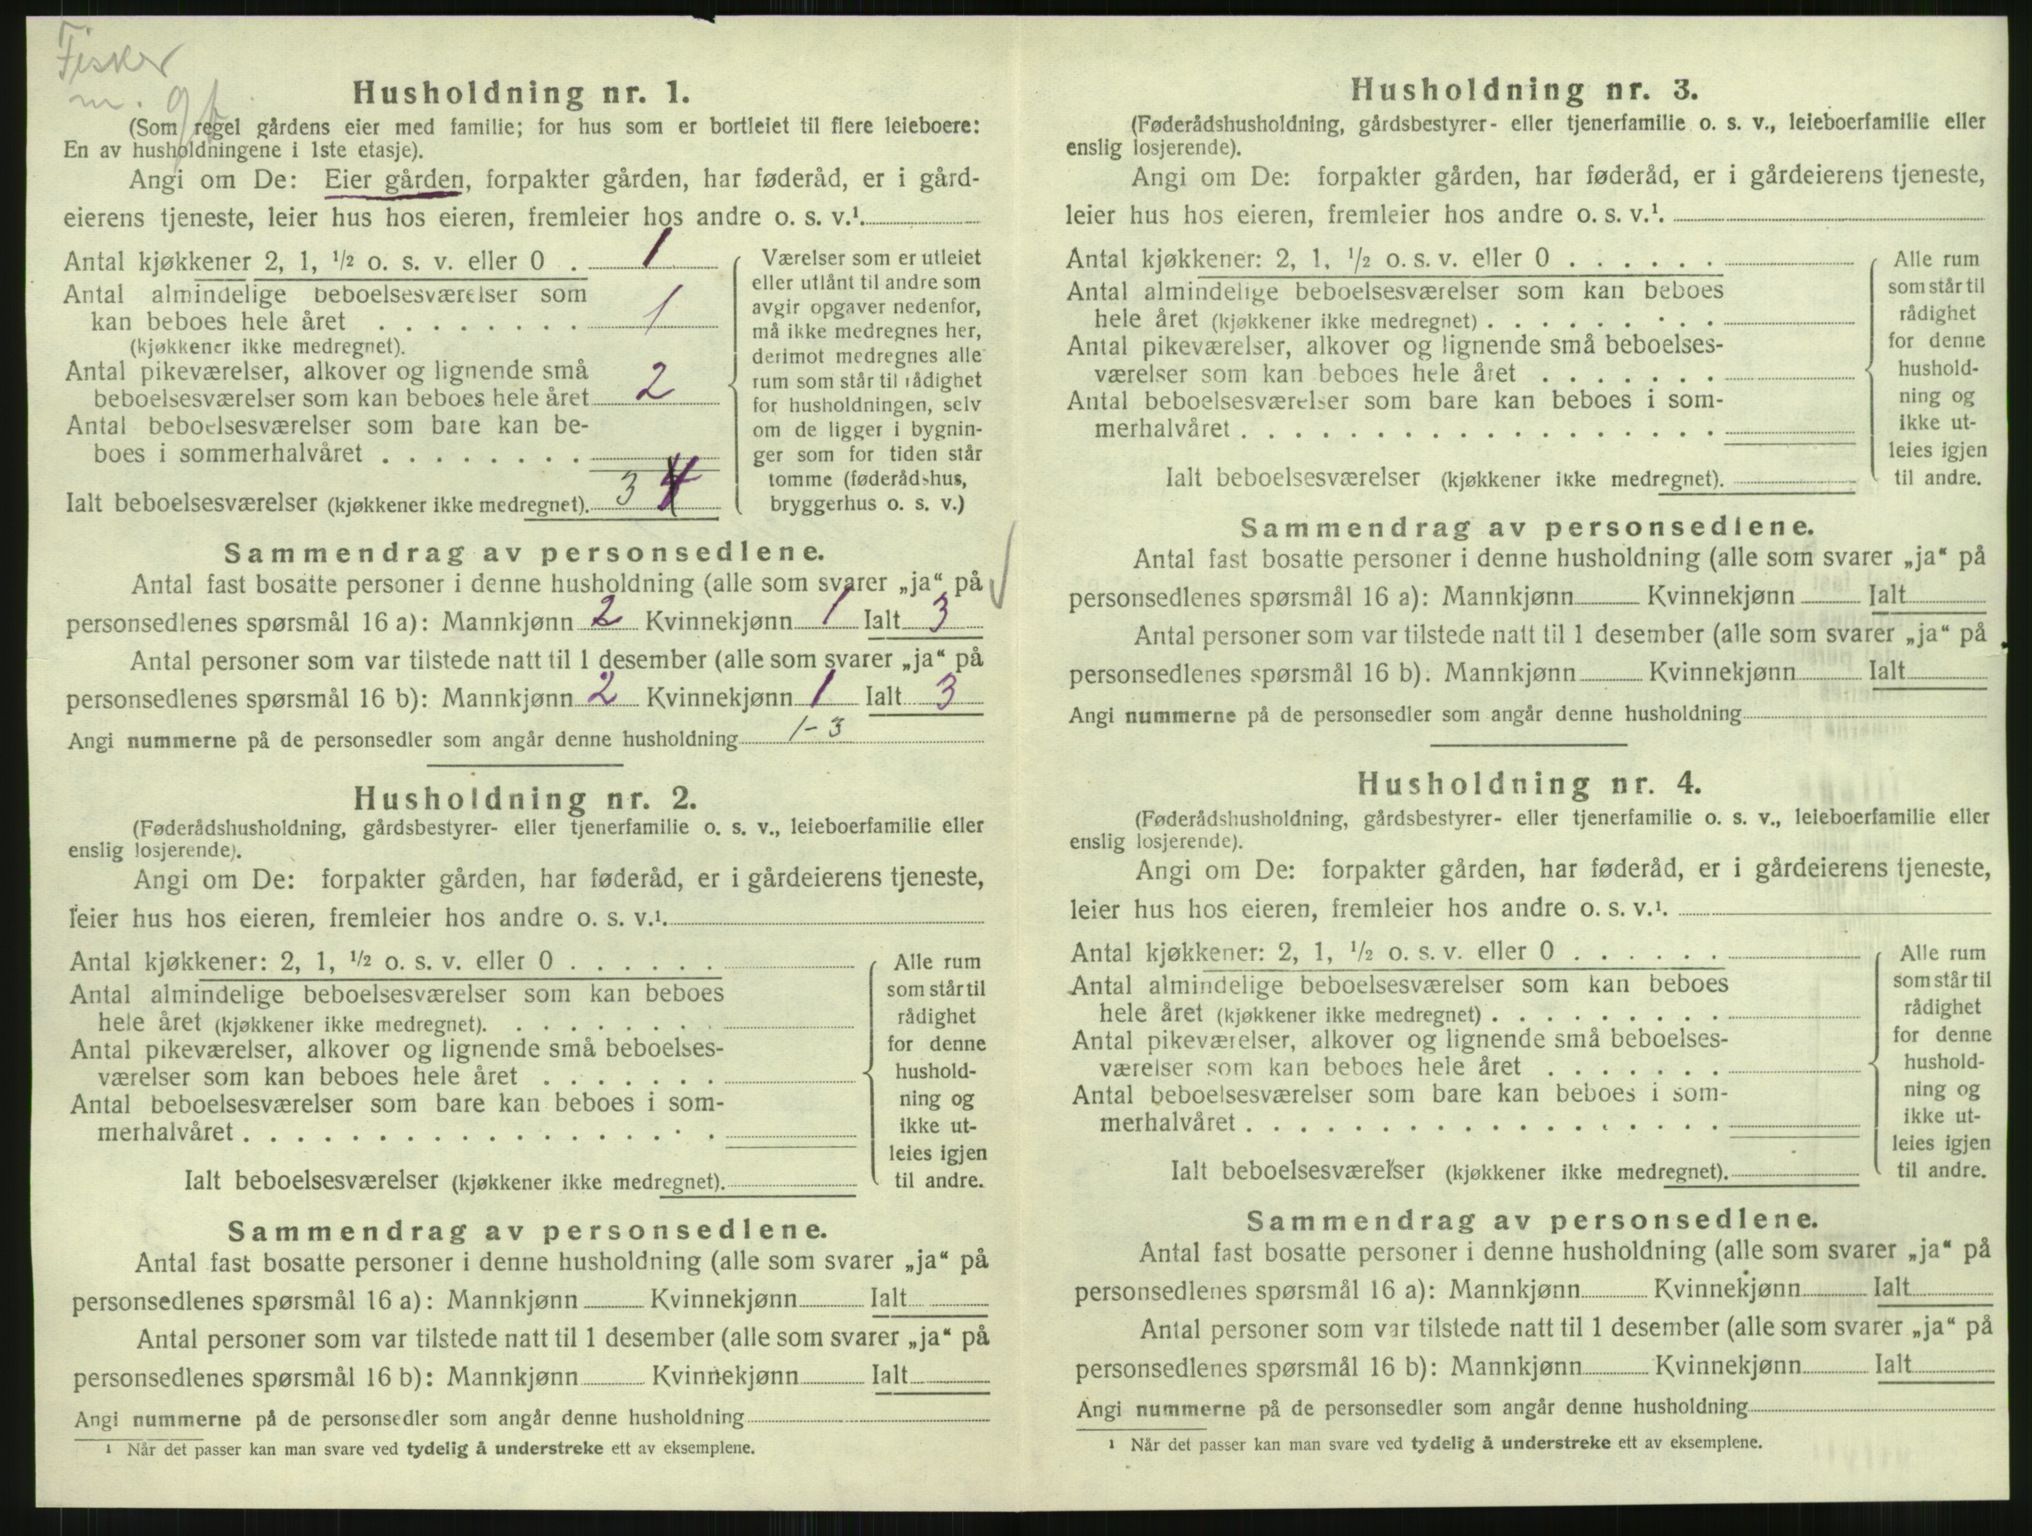 Fisker
m. gb.
Husholdning nr. 1.
(Som regel gårdens eier med familie; for hus som er bortleiet til flere leieboere:
En av husholdningene i 1ste etasje).
Angi om De: Eier gården, forpakter gården, har føderåd, er i gård-
eierens tjeneste, leier hus hos eieren, fremleier hos andre o. s. v.¹
Antal kjøkkener 2, 1, ½ o. s. v. eller 0 . 1
Antal almindelige beboelsesværelser som
kan beboes hele året . . . . . . . . 1
(kjøkkener ikke medregnet).
Antal pikeværelser, alkover og lignende små
beboelsesværelser som kan beboes hele året 2
Antal beboelsesværelser som bare kan be-
boes i sommerhalvåret . . . . . . . .
Ialt beboelsesværelser (kjøkkener ikke medregnet). 3 4
Værelser som er utleiet
eller utlånt til andre som
avgir opgaver nedenfor,
må ikke medregnes her,
derimot medregnes alle
rum som står til rådighet
for husholdningen, selv
om de ligger i bygnin-
ger som for tiden står
tomme (føderådshus,
bryggerhus o. s. v.)
Sammendrag av personsedlene.
Antal fast bosatte personer i denne husholdning (alle som svarer „ja“ på
personsedlenes spørsmål 16 a): Mannkjønn 2 Kvinnekjønn 1 Ialt 3
Antal personer som var tilstede natt til 1 desember (alle som svarer „ja“ på
personsedlenes spørsmål 16 b): Mannkjønn 2 Kvinnekjønn 1 Ialt 3
Angi nummerne på de personsedler som angår denne husholdning 1-3
Husholdning nr. 2.
(Føderådshusholdning, gårdsbestyrer- eller tjenerfamilie o. s. v., leieboerfamilie eller
enslig losjerende).
Angi om De: forpakter gården, har føderåd, er i gårdeierens tjeneste,
leier hus hos eieren, fremleier hos andre o. s. v.¹.
Antal kjøkkener: 2, 1, ½ o. s. v. eller 0 . . . . . .
Antal almindelige beboelsesværelser som kan beboes
hele året (kjøkkener ikke medregnet). . . . . . . . .
Antal pikeværelser, alkover og lignende små beboelses-
værelser som kan beboes hele året . . . . . . .
Antal beboelsesværelser som bare kan beboes i som-
merhalvåret . . . . . . . . . . . . . . . . . .
Ialt beboelsesværelser (kjøkkener ikke medregnet).
Alle rum
som står til
rådighet
for denne
hushold-
ning og
ikke ut-
leies igjen
til andre.
Sammendrag av personsedlene.
Antal fast bosatte personer i denne husholdning (alle som svarer „ja“ på
personsedlenes spørsmål 16 a): Mannkjønn Kvinnekjønn Ialt
Antal personer som var tilstede natt til 1 desember (alle som svarer „ja“ på
personsedlenes spørsmål 16 b): Mannkjønn Kvinnekjønn Ialt
Angi nummerne på de personsedler som angår denne husholdning
¹ Når det passer kan man svare ved tydelig å understreke ett av eksemplene.
Husholdning nr. 3.
(Føderådshusholdning, gårdsbestyrer- eller tjenerfamilie o. s. v., leieboerfamilie eller
enslig losjerende).
Angi om De: forpakter gården, har føderåd, er i gårdeierens tjeneste,
leier hus hos eieren, fremleier hos andre o. s. v.¹.
Antal kjøkkener: 2, 1, ½ o. s. v. eller 0 . . . . . .
Antal almindelige beboelsesværelser som kan beboes
hele året (kjøkkener ikke medregnet) . . . . . . . . .
Antal pikeværelser, alkover og lignende små beboelses-
værelser som kan beboes hele året . . . . . . .
Antal beboelsesværelser som bare kan beboes i som-
merhalvåret . . . . . . . . . . . . . . . . . .
Ialt beboelsesværelser (kjøkkener ikke medregnet).
Alle rum
som står til
rådighet
for denne
hushold-
ning og
ikke ut-
leies igjen
til andre.
Sammendrag av personsedlene.
Antal fast bosatte personer i denne husholdning (alle som svarer „ja“ på
personsedlenes spørsmål 16 a): Mannkjønn Kvinnekjønn Ialt
Antal personer som var tilstede natt til 1 desember (alle som svarer „ja“ på
personsedlenes spørsmål 16 b). Mannkjønn Kvinnekjønn Ialt
Angi nummerne på de personsedler som angår denne husholdning
Husholdning nr. 4.
(Føderådshusholdning, gårdsbestyrer- eller tjenerfamilie o. s. v., leieboerfamilie eller
enslig losjerende).
Angi om De: forpakter gården, har føderåd, er i gårdeierens tjeneste,
leier hus hos eieren, fremleier hos andre o. s. v.¹.
Antal kjøkkener: 2, 1, ½ o. s. v. eller 0 . . . . . .
Antal almindelige beboelsesværelser som kan beboes
hele året (kjøkkener ikke medregnet) . . . . . . . . .
Antal pikeværelser, alkover og lignende små beboelses-
værelser som kan beboes hele året . . . . . . .
Antal beboelsesværelser som bare kan beboes i som-
merhalvåret . . . . . . . . . . . . . . . . . .
Ialt beboelsesværelser (kjøkkener ikke medregnet).
Alle rum
som står til
rådighet
for denne
hushold-
ning og
ikke ut-
leies igjen
til andre.
Sammendrag av personsedlene.
Antal fast bosatte personer i denne husholdning (alle som svarer „ja“ på
personsedlenes spørsmål 16 a): Mannkjønn Kvinnekjønn Ialt
Antal personer som var tilstede natt til 1 desember (alle som svarer „ja“ på
personsedlenes spørsmål 16 b): Mannkjønn Kvinnekjønn Ialt
Angi nummerne på de personsedler som angår denne husholdning
¹ Når det passer kan man svare ved tydelig å understreke ett av eksemplene.